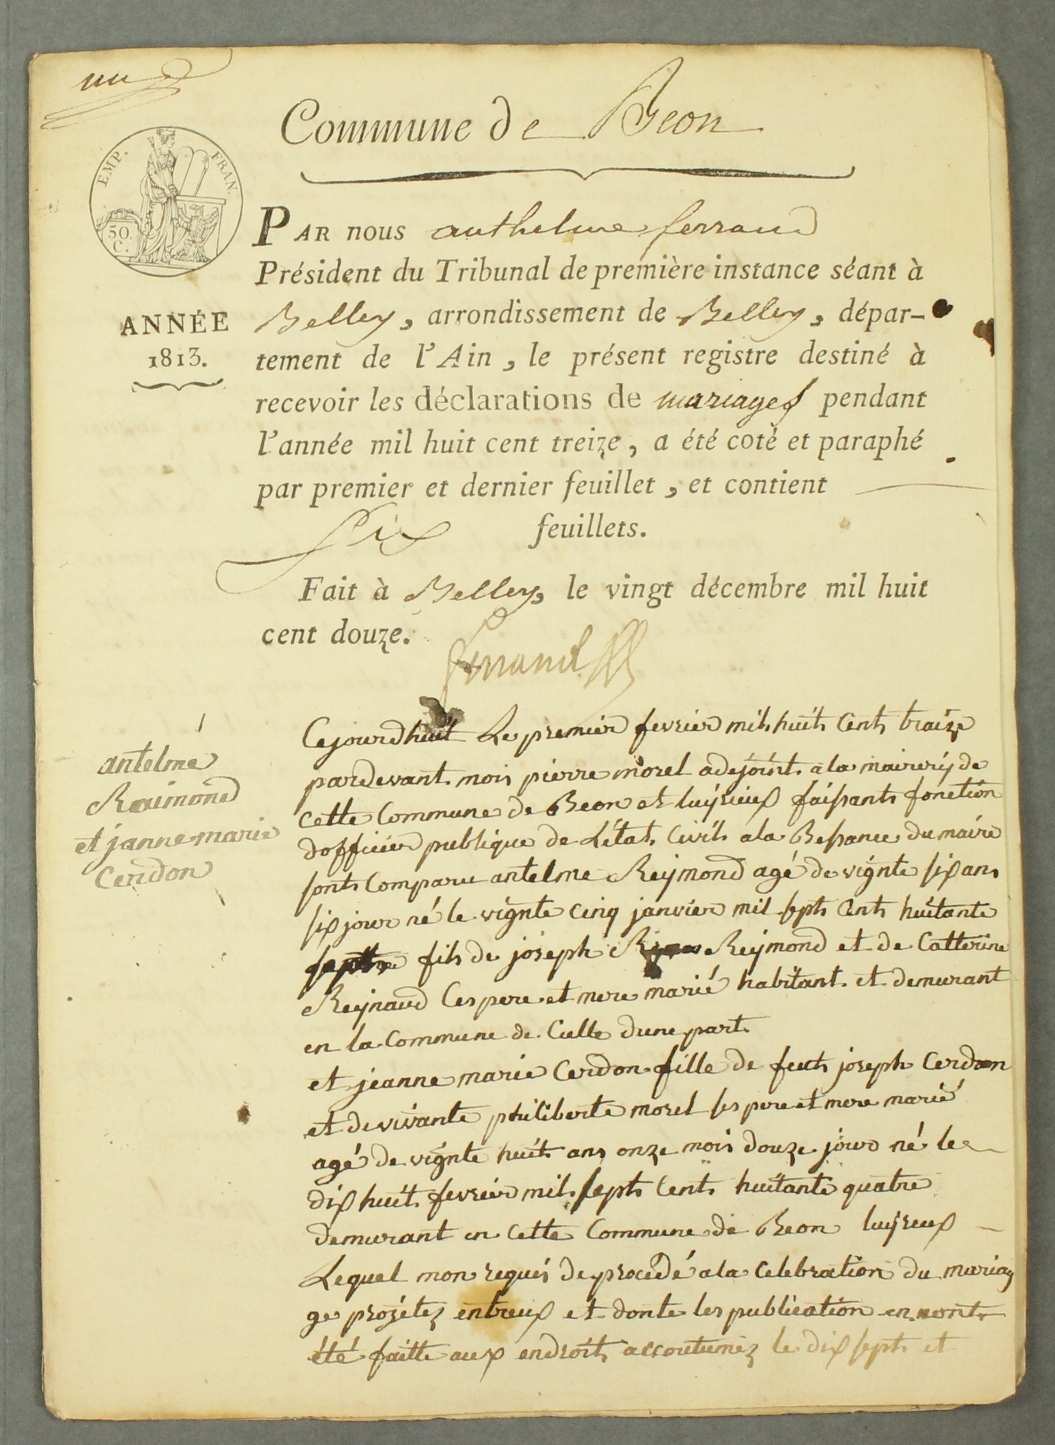 un
Commune de Beon
EMP. FRAN.
50.
C.
PAR nous anthelme ferrand
Président du Tribunal de première instance séant à
ANNÉE
1813.
Belley, arrondissement de Belley, dépar-
tement de l'Ain, le présent registre destiné à
recevoir les déclarations de mariages pendant
l'année mil huit cent treize, a été coté et paraphé
par premier et dernier feuillet, et contient
Six feuillets.
Fait à Belley, le vingt décembre mil huit
cent douze.
ferrand
1
antelme
Raimond
et janne marie
Cerdon
Cejourdhuit Le premier fevrier mil huit Cent traize
pardevant mois pierre morel adejoint a la mairery de
cette Commune de Beon et luyrieux faisant fonction
dofficier publique de Létat Civil ala Besance du maire
sont Comparu antelme Reymond agé de vignte six ans
six jour né le vignte cinq janvier mil sept Cent huitante
septre fils de joseph Reymond et de Catterine
Reynaud Ces pere et mere marié habitant et demurant
en la Commune de Culle dune part
et jeanne marie Cerdon fille de feut joseph Cerdon
et de vivante philiberte morel ses pere et mere marié
agé de vignte huit ans onze mois douze jour né le
dix huit fevrier mil sept Cent huitante quatre
demurant en cette Commune de Beon luyrieux
Lequel mon requis de procédé ala Celebration du mariag
ge projétez entreux et donte les publication en nont
été faitte aux endroit accoutumez le dix sept et